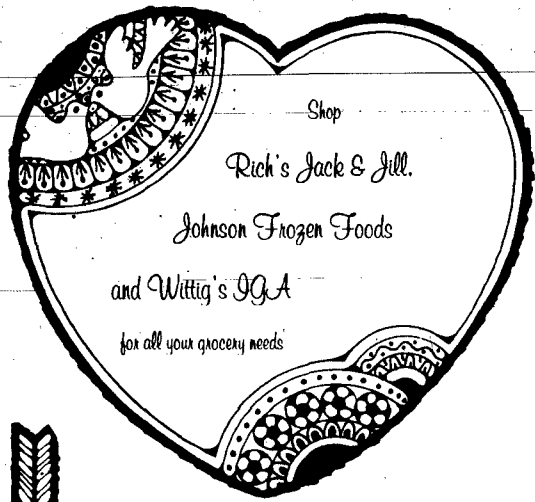 Shop
Rich's Jack & Jill,
Johnson Frozen Foods
and Wittig's IGA
for all your grocery needs